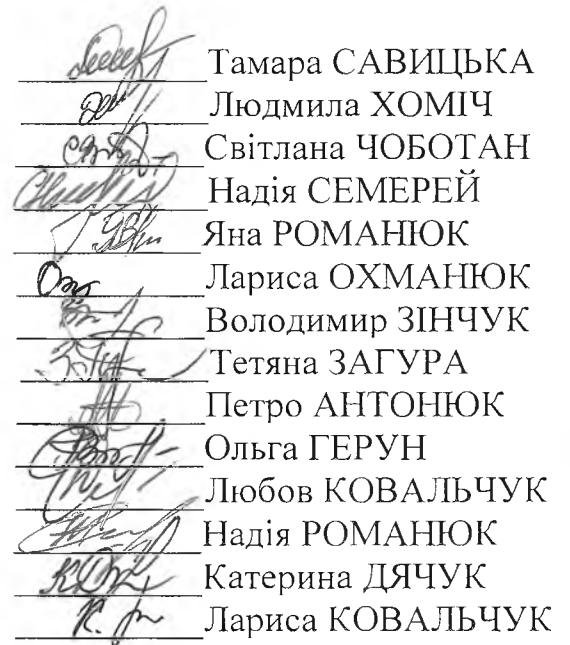 Тамара САВИЦЬКА
Людмила ХОМІЧ
Світлана ЧОБОТАН
Надія СЕМЕРЕЙ
Яна РОМАНЮК
Лариса ОХМАНЮК
Володимир ЗІНЧУК
Тетяна ЗАГУРА
Петро АНТОНЮК
Ольга ГЕРУН
Любов КОВАЛЬЧУК
Надія РОМАНЮК
Катерина ДЯЧУК
Лариса КОВАЛЬЧУК